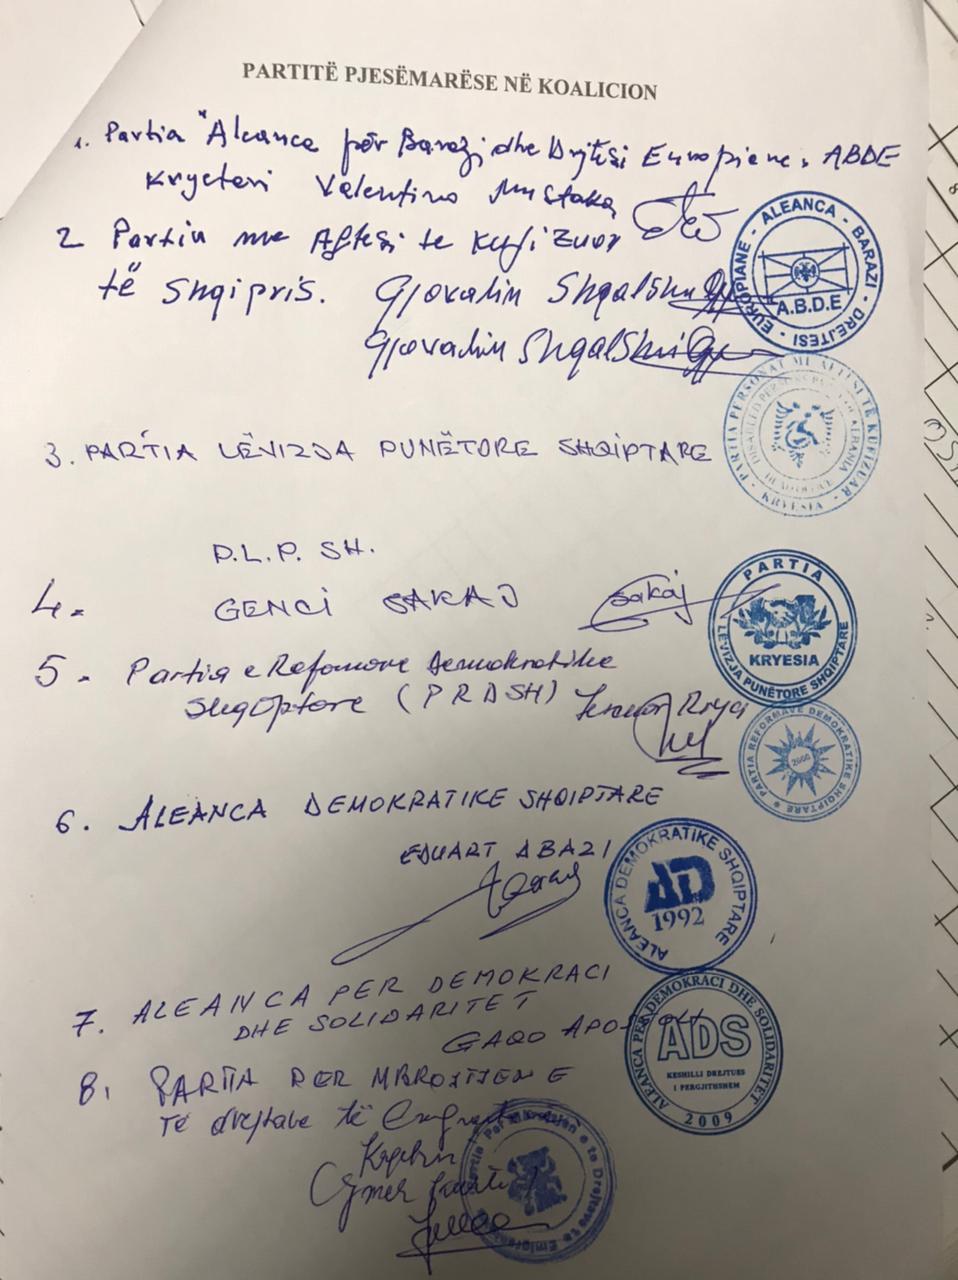 PARTITË PJESËMARËSE NË KOALICION
1. Partia "Aleanca për Barazi dhe Drejtësi Europiane. ABDE
Kryetari Valentino Mustaka
EUROPIANE - ALEANCA - BARAZI - DREJTESI
A.B.D.E
2 Partia me Aftesi te Kufizuar
të Shqipris. Gjovalin Shqalshi
Gjovalin Shqalshi
PARTIA PERSONAT ME AFTESI TË KUFIZUAR - KRYESIA
3. PARTIA LËVIZJA PUNËTORE SHQIPTARE
P.L.P. SH.
4. GENCI SAKAJ Sakaj
PARTIA
LEVIZJA PUNËTORE SHQIPTARE
KRYESIA
5. Partia e Refomave Demokratike
Shqiptare (PRDSH)
PARTIA REFORMAVE DEMOKRATIKE SHQIPTARE
2000
6. ALEANCA DEMOKRATIKE SHQIPTARE
EDUART ABAZI
ALEANCA DEMOKRATIKE SHQIPTARE
AD
1992
7. ALEANCA PER DEMOKRACI
DHE SOLIDARITET
GAQO
ALEANCA PËR DEMOKRACI DHE SOLIDARITET
ADS
KESHILLI DREJTUES
I PERGJITHSHEM
2009
8. PARTIA PER MBROJTJEN E
Të drejtave të
Partia Per Mbrojtjen e te Drejtave te